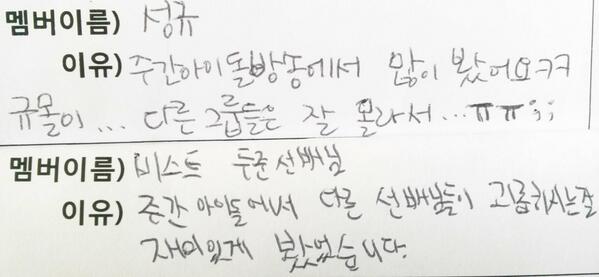 멤버이름) 성규
이유) 주간아이돌방송에서 많이 봤어요ㅋㅋ
규몰이... 다른 그룹들은 잘 몰라서...ㅠㅠ;;
멤버이름) 비스트 두준선배님
이유) 주간아이돌에서 다른 선배님들이 괴롭히시는걸
재미있게 봤었습니다.